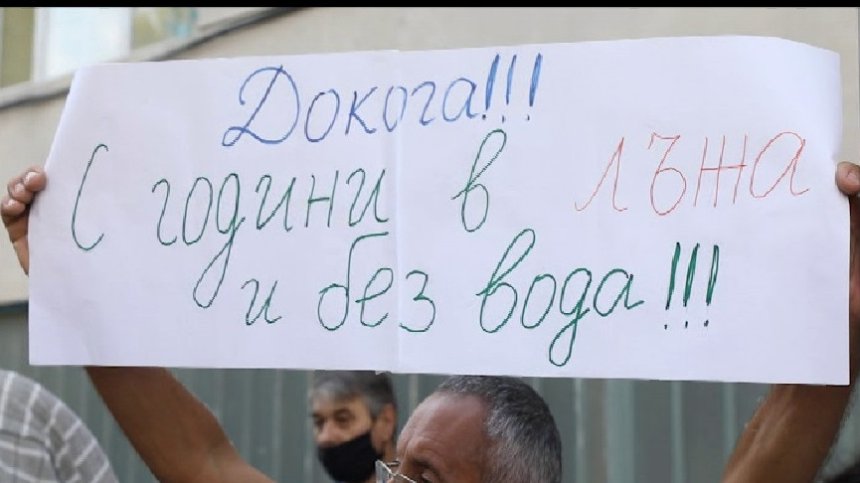 Докога!!!
С години в лъжа
и без вода!!!